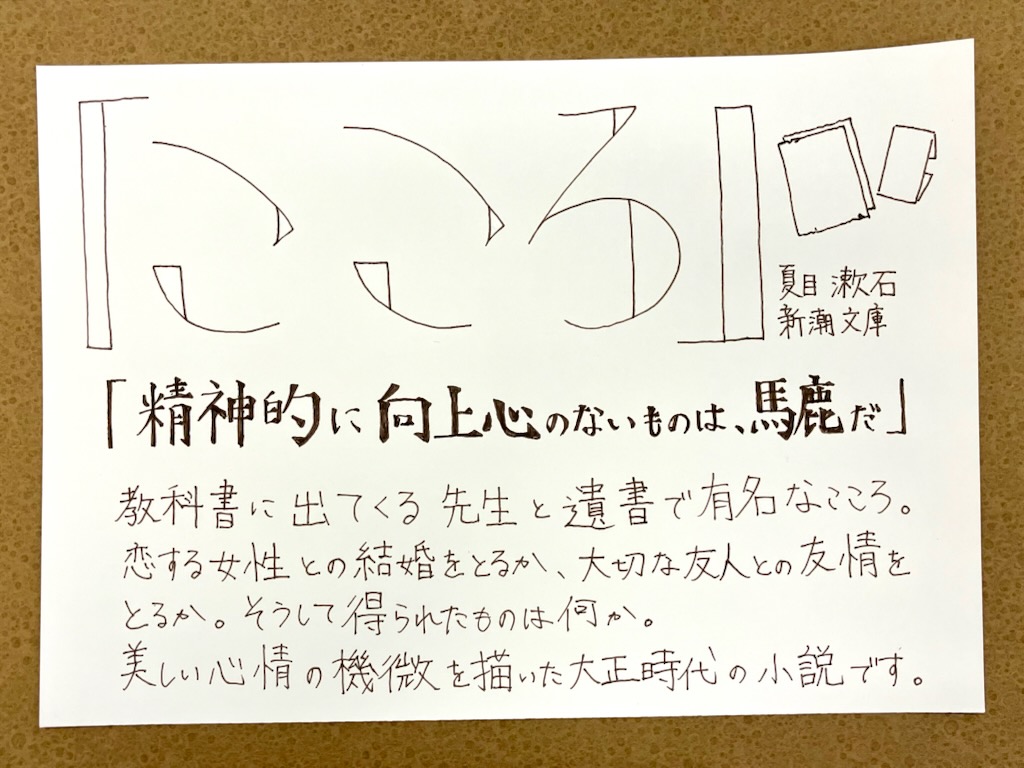 『こころ』
夏目漱石
新潮文庫
「精神的に向上心のないものは、馬鹿だ」
教科書に出てくる先生と遺書で有名なこころ。
恋する女性との結婚をとるか、大切な友人との友情を
とるか。そうして得られたものは何か。
美しい心情の機微を描いた大正時代の小説です。